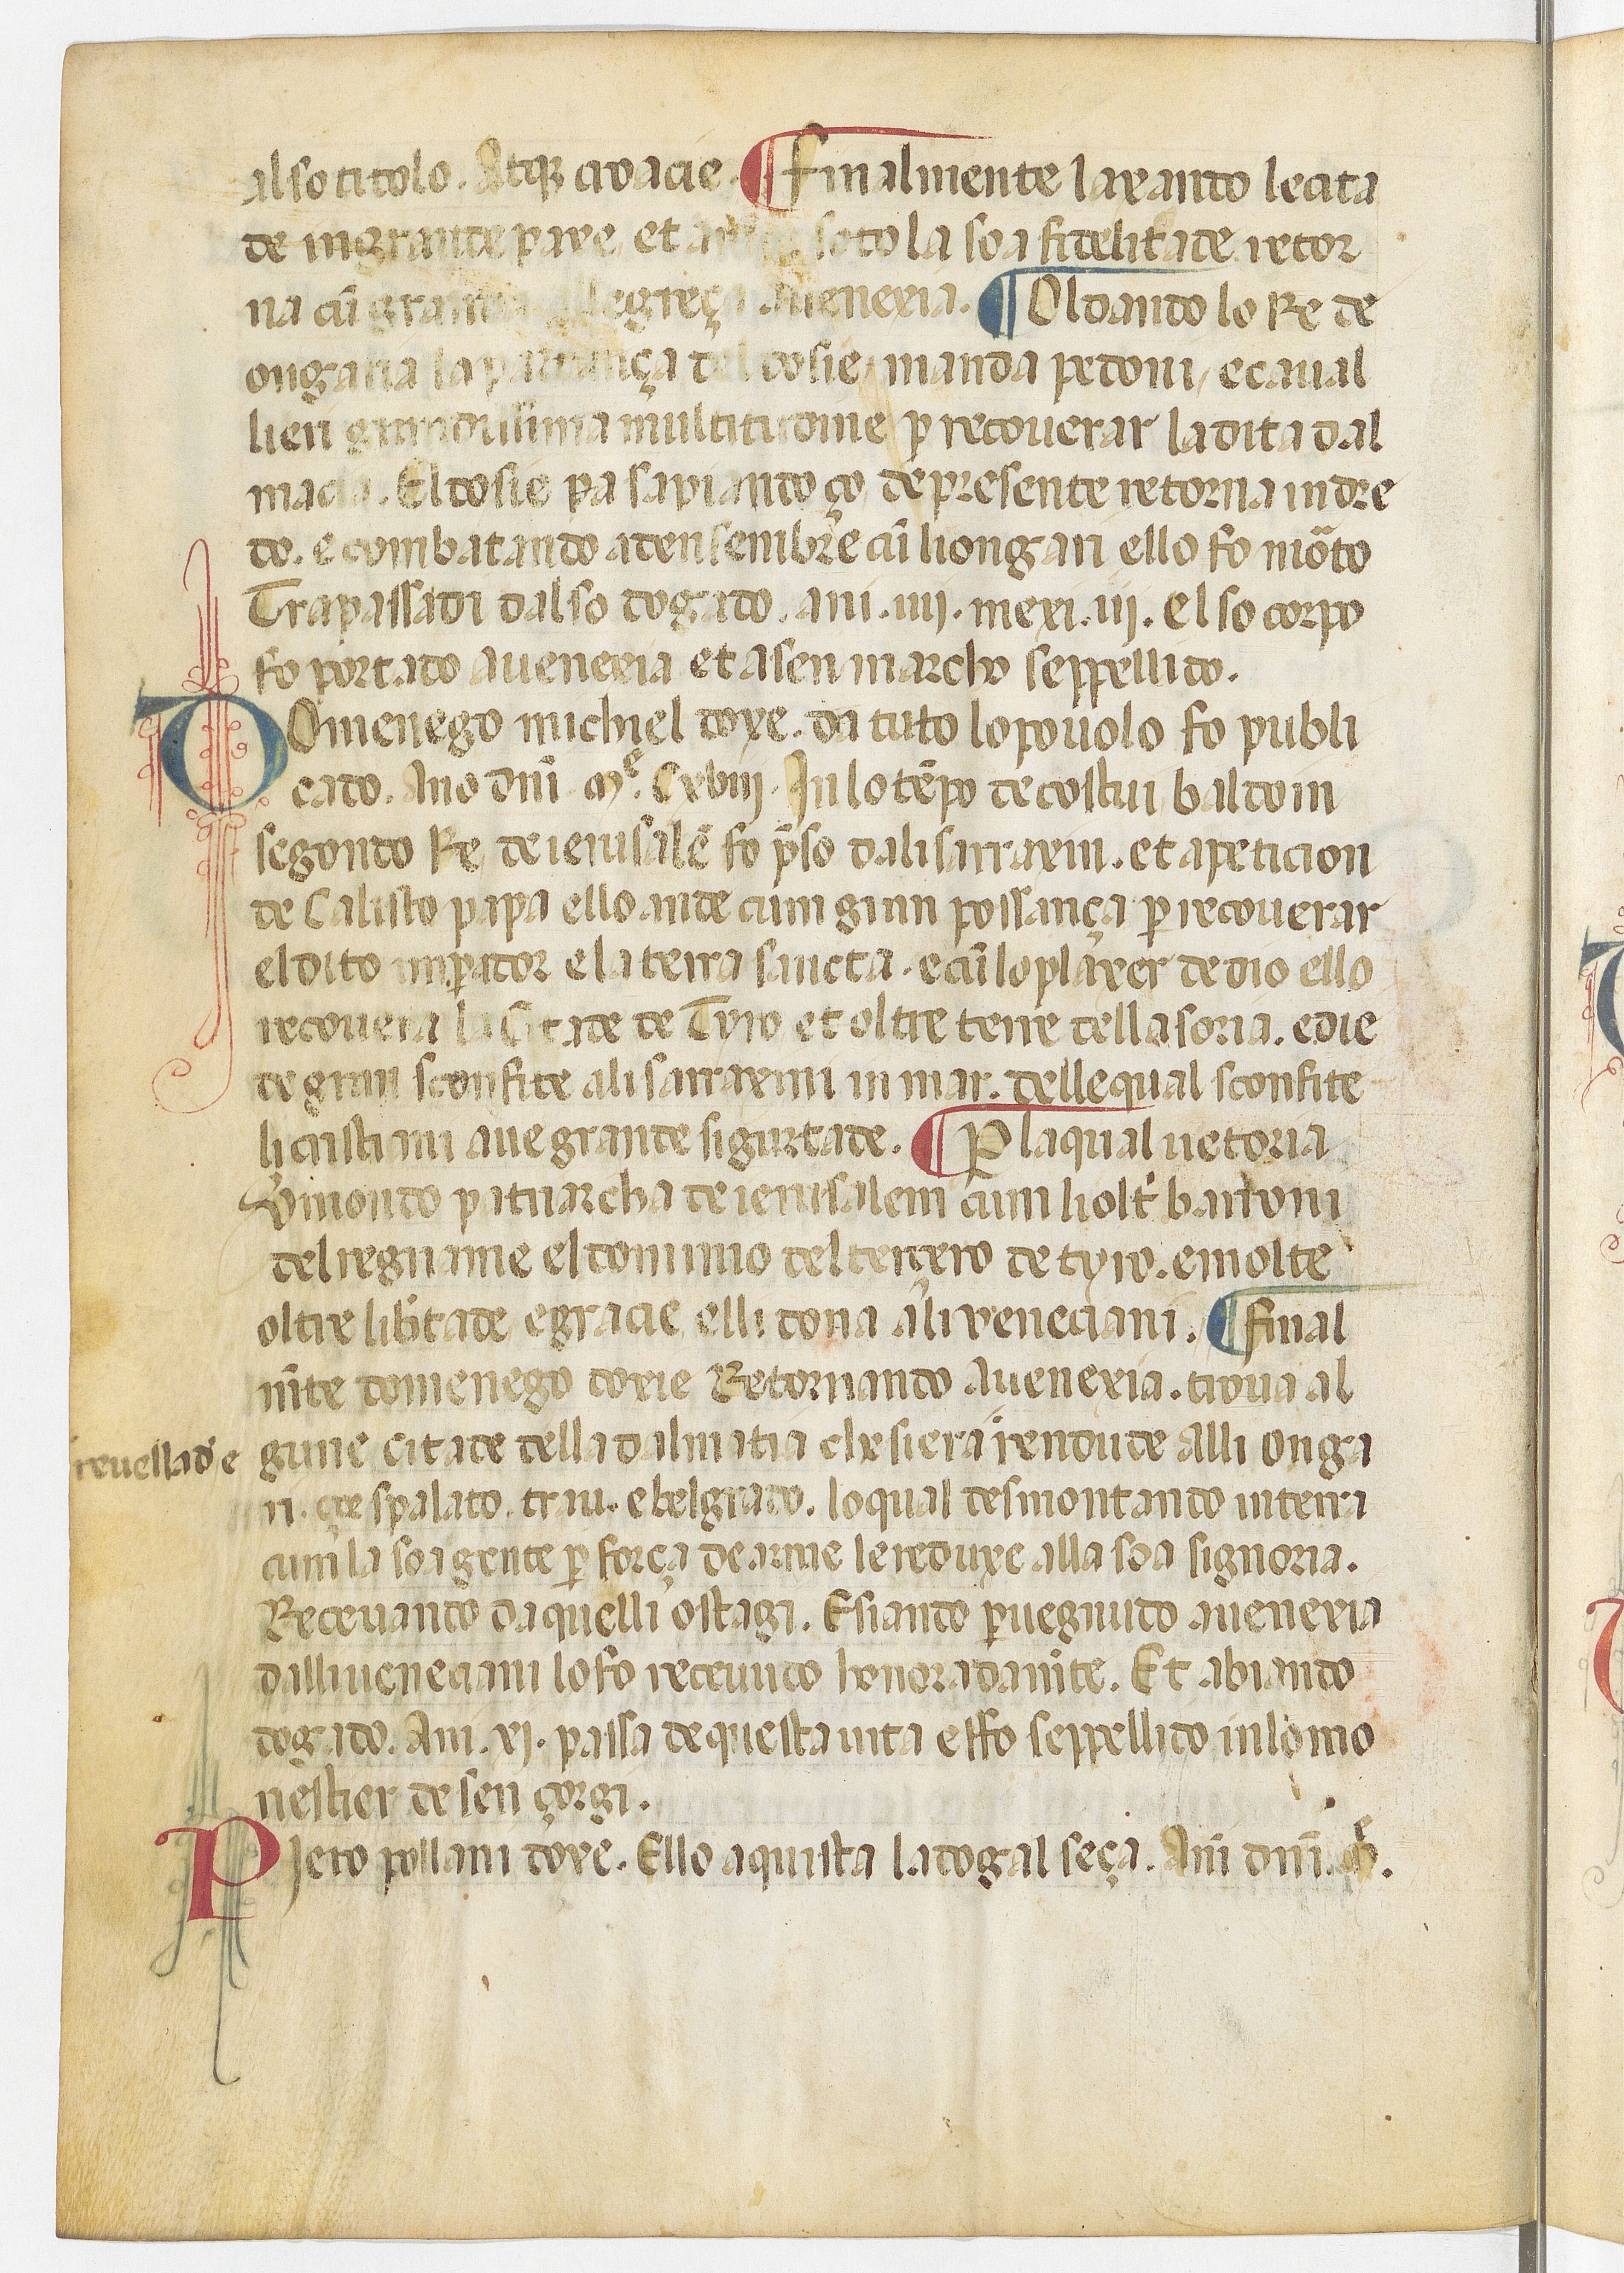 al so titolo. Atq3 croacie. ¶ finalmente laxando le cita
de in grande paxe et a soto la soa fidelitade retor
na cũ grande alegreça. Auenexia. ¶ Oldando lo Re de
ongaria la partança del dosie manda pedoni, e caual
lieri grandissima multitudine p recouerar la dita dal
macia. El dosie pa sapiando ço de presente retorna indre
do. e combatando adensembre cũ li ongari ello fo mõto
Trapassadi dal so dogado. ani. iiij. mexi. iij. El so corpo
fo portado a uenexia et a sen marcho seppellido.
DOmenego michiel doxe. da tuto lo pouolo fo publi
cado. Ano dñi Mᵒ. Cxviij. In lo tẽpo de costui baldoin
segondo Re de ierusalẽ fo p̃so dali sarraxin. et a peticion
de Calisto papa ello ande cum gran possança p recouerar
el dito impador e la terra sancta. e cũ lo plaxer de dio ello
recouera la Citade de Tyro et oltre terre della soria. e die
de gran sconfite ali sarraxini in mar. delle qual sconfite
li cristiani aue grande sigurtade. ¶ P la qual uetoria
Vimondo patriarcha de ierusalem cum li oltr̃ baroni
del regname el dominio del terçero de tyro. e molte
oltre lib̃tade e gracie elli dona ali veneciani. ¶ final
mẽte domenego doxie Retornando A uenexia. troua al
gune Citade della dalmatia che si era rendude alli onga
reuellad e
ri. çoe spalato. trau. e belgrado. lo qual desmontando in terra
cum la soa gente p força de arme le reduxe alla soa signoria.
Receuando da quelli ostagi. E siando puegnudo a uenexia
dalli ueneciani lo fo receuudo honoradamẽte. Et abiando
dogado. Ani. xj. passa de questa uita e ffo seppellido in lo mo
nestier de sen çorgi.
PIero pollani doxe. Ello aquista la dogal seça. Ani dñi. Mᵒ.